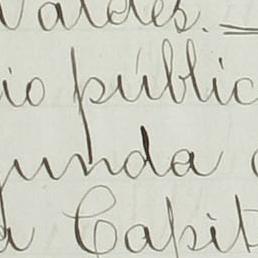 Valdés.
io públic
gunda
a Capit